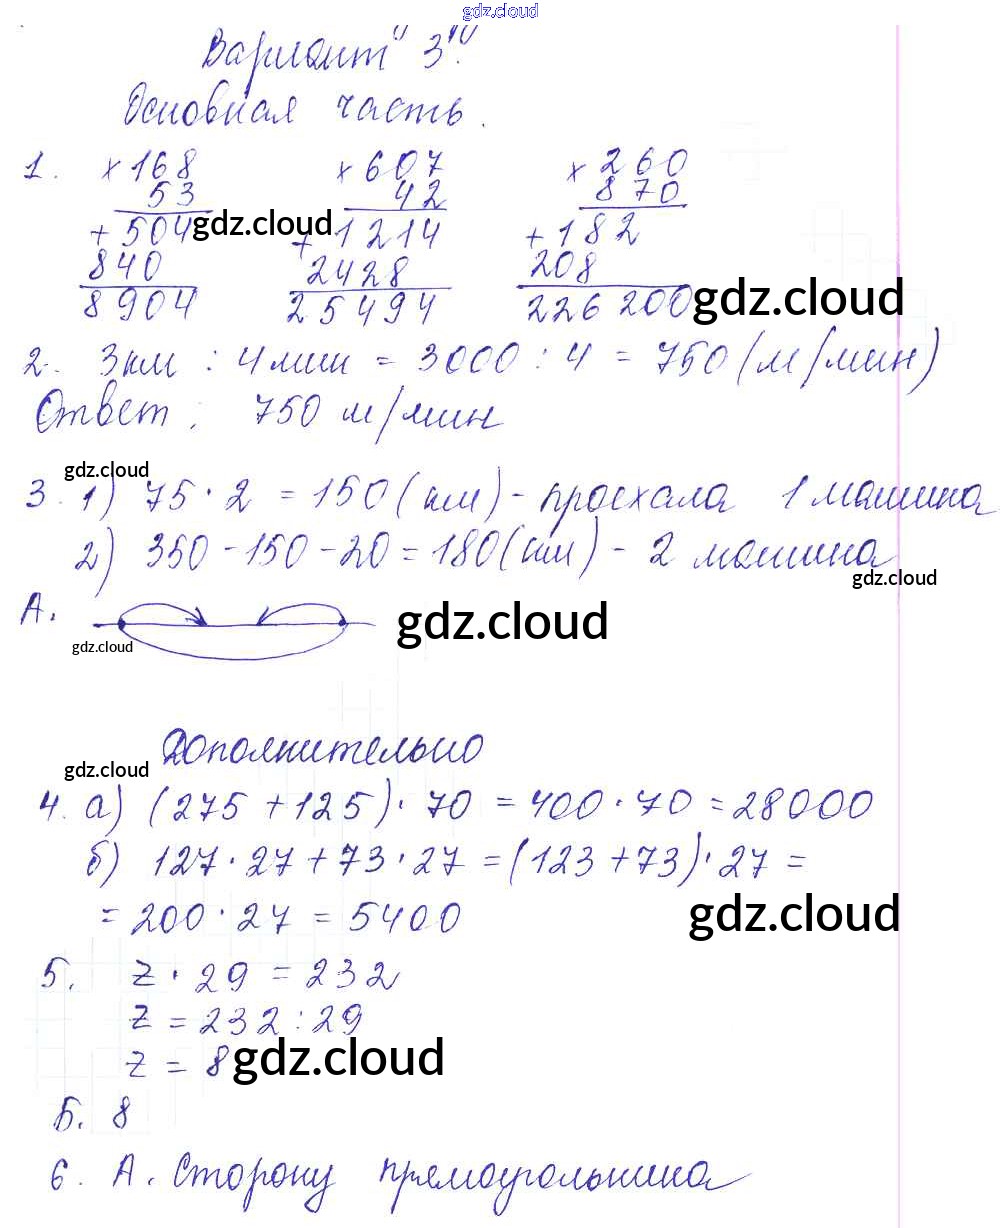 gdz.cloud
Вариант "3".
Основная часть.
1. × 168 × 607 × 260
53 42 870
+ 504 gdz.cloud + 1214 + 182
840 2428 208
8904 25494 226 200 gdz.cloud
2. 3км : 4мин = 3000 : 4 = 750 (м/мин)
Ответ: 750 м/мин
gdz.cloud
3. 1) 75 · 2 = 150 (км) - проехала 1 машина
2) 350 - 150 - 20 = 180 (км) - 2 машина
gdz.cloud
А. gdz.cloud
gdz.cloud
Дополнительно
gdz.cloud
4. а) (275 + 125) · 70 = 400 · 70 = 28000
б) 127 · 27 + 73 · 27 = (123 + 73) · 27 =
= 200 · 27 = 5400 gdz.cloud
5. z · 29 = 232
z = 232 : 29
z = 8 gdz.cloud
Б. 8
6. А. Сторону прямоугольника